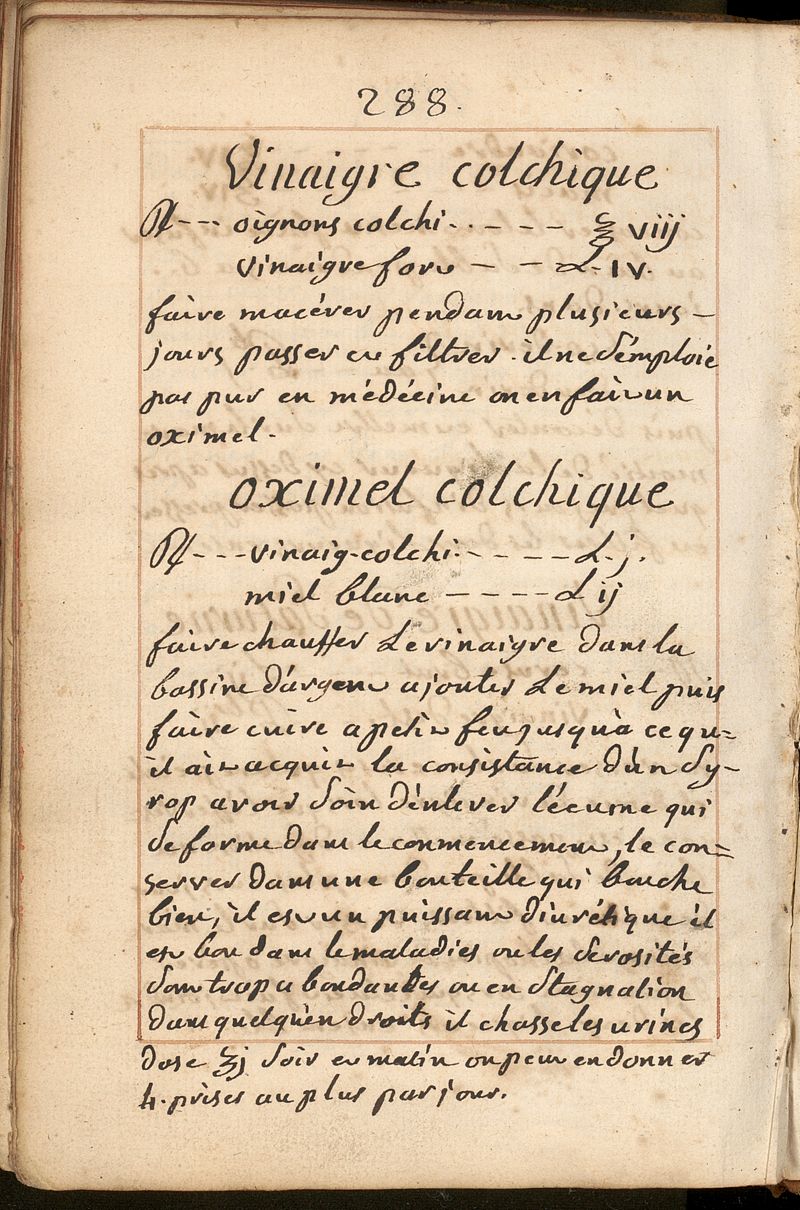 288.
Vinaigre colchique
℞ --- oignons colchi.. - - - - ℥ viij
vinaigre fort - - - L. iv.
faire macérer pendant plusieurs -
jours passer et filtrer. il ne s'emploie
pas pur en médécine on en fait un
oximel.
oximel colchique
℞ --- vinaig. colchi. - - - - - L. j.
miel blanc - - - - - L ij
faire chauffer le vinaigre dans la
bassine d'argent ajouter le miel puis
faire cuire a petit feu jusqu'à ce qu=
il ait acquit la consistance d'un sy-
rop avoir soin d'enlever l'écume qui
se forme dans le commencement, le con=
server dans une bouteille qui bouche
bien, il est un puissant diurétique il
est bon dans le maladies ou les serosités
sont trop abondantes ou en stagnation
dans quelqu'en droits il chasse les urines
dose ℥j soir et matin on peut en donner
4. prises au plus par jour.